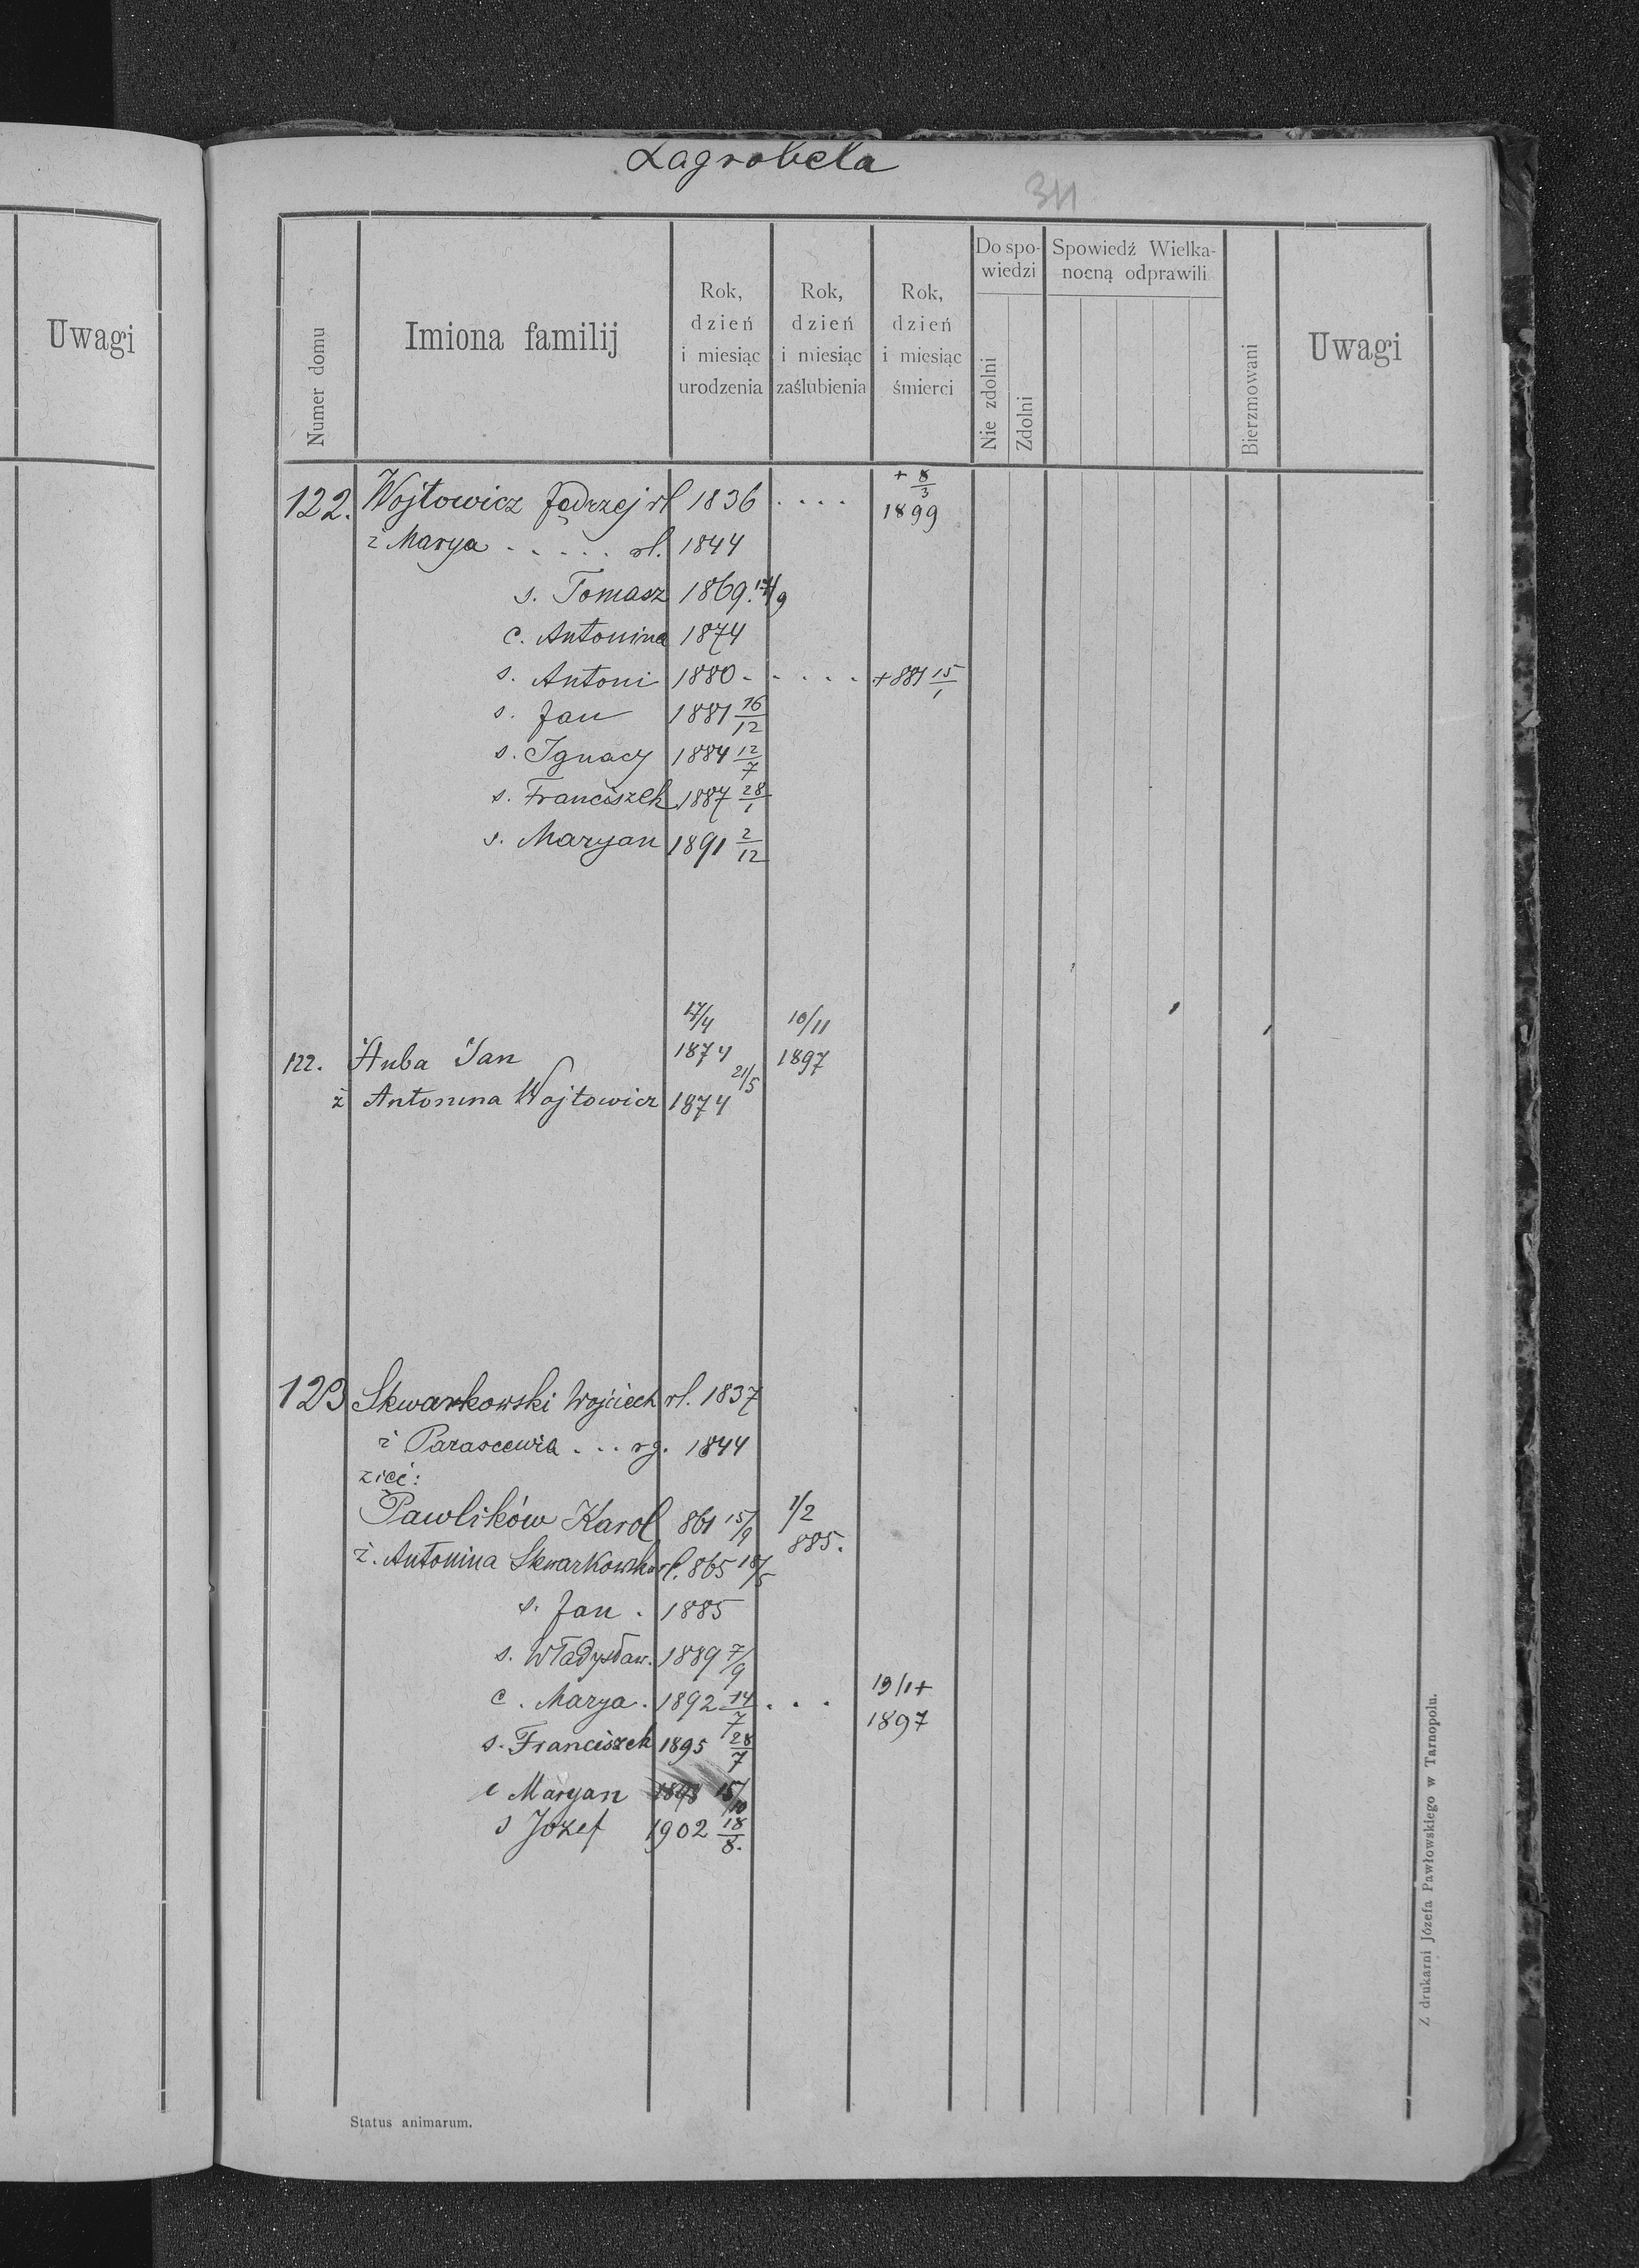 Zagrobela
311
Uwagi
Numer domu
Imiona familij
Rok, dzień i miesiąc urodzenia
Rok, dzień i miesiąc zaślubienia
Rok, dzień i miesiąc śmierci
Do spowiedzi
Nie zdolni
Zdolni
Spowiedź Wielkanocną odprawili
Bierzmowani
Uwagi
122. Wojtowicz Jędrzej rl 1836 . . . . + 8/3 1899
ż Marya . . . . . rl. 1844
s. Tomasz 1869. 14/9
c. Antonina 1874
s. Antoni 1880 - . . . . +881 15/1
s. Jan 1881 16/12
s. Ignacy 1884 12/7
s. Franciszek 1887 28/1
s. Maryan 1891 2/12
122. Huba Jan 17/4 1874 10/11 1897
ż Antonina Wojtowicz 1874 21/5
123 Skwarkowski Wojciech rl. 1837
ż Parascewia . . . rg. 1844
zięć:
Pawlików Karol 861 15/9 1/2 885.
ż. Antonina Skwarkowska rl. 865 18/5
s. Jan . 1885
s. Władysław. 1889 7/9
c. Marya . 1892 14/7 . . . 19/1 + 1897
s. Franciszek 1895 28/7
Maryan 1898 15/10
s Józef 1902 18/8.
Status animarum.
Z drukarni Józefa Pawłowskiego w Tarnopolu.